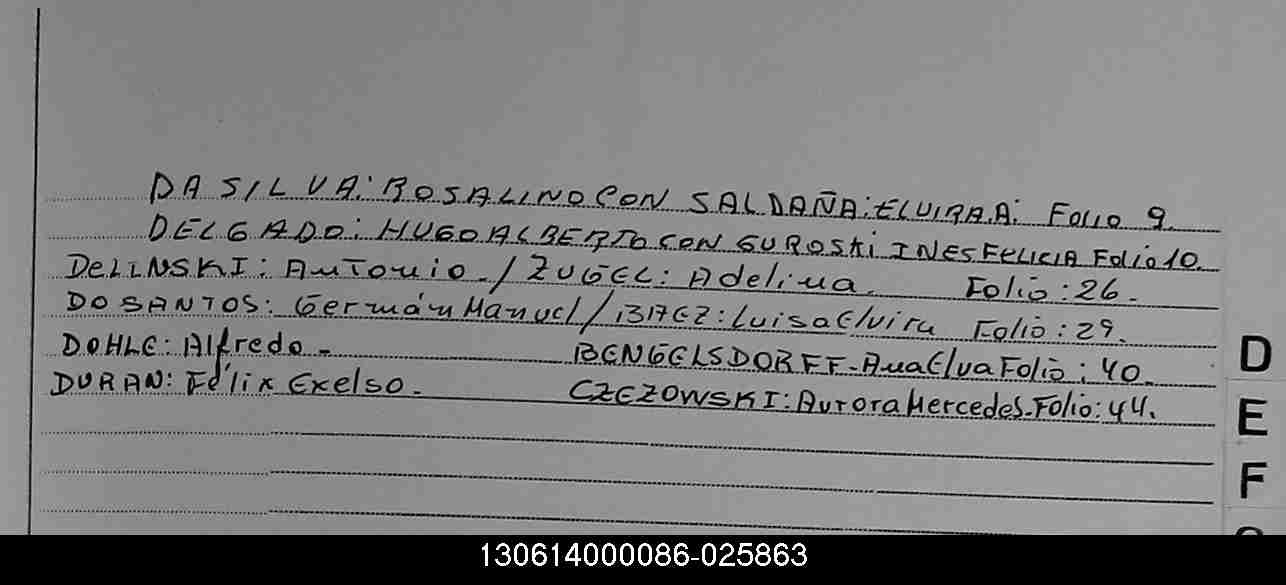 DA SILVA: ROSALINO CON SALDAÑA: ELVIRA A: Folio 9.
DELGADO: HUGO ALBERTO CON GUROSKI INES FELICIA Folio 10.
DELINSKI: Antonio. / ZUGEL: Adelina. Folio: 26.
DO SANTOS: Germán Manuel / BAEZ: Luisa Elvira Folio: 29.
DOHLE: Alfredo. BENGELSDORFF - Ana Elva Folio: 40.
DURAN: Félix Exelso. CZEZOWSKI: Aurora Mercedes. Folio: 44.
D
E
F
130614000086-025863